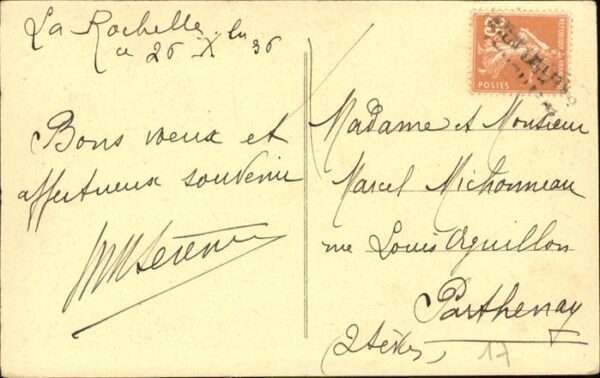 La Rochelle
ce 26 Xbre 36
Bons voeux et
affectueux souvenir
Madame et Monsieur
Marcel Michonneau
rue Louis Aguillon
Parthenay
2 Sèvres,
17
POSTES